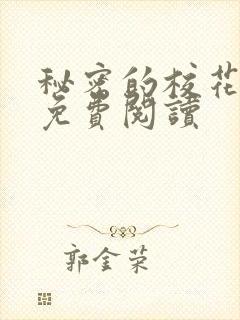 秘密的校花
免費閱讀
郭金荣